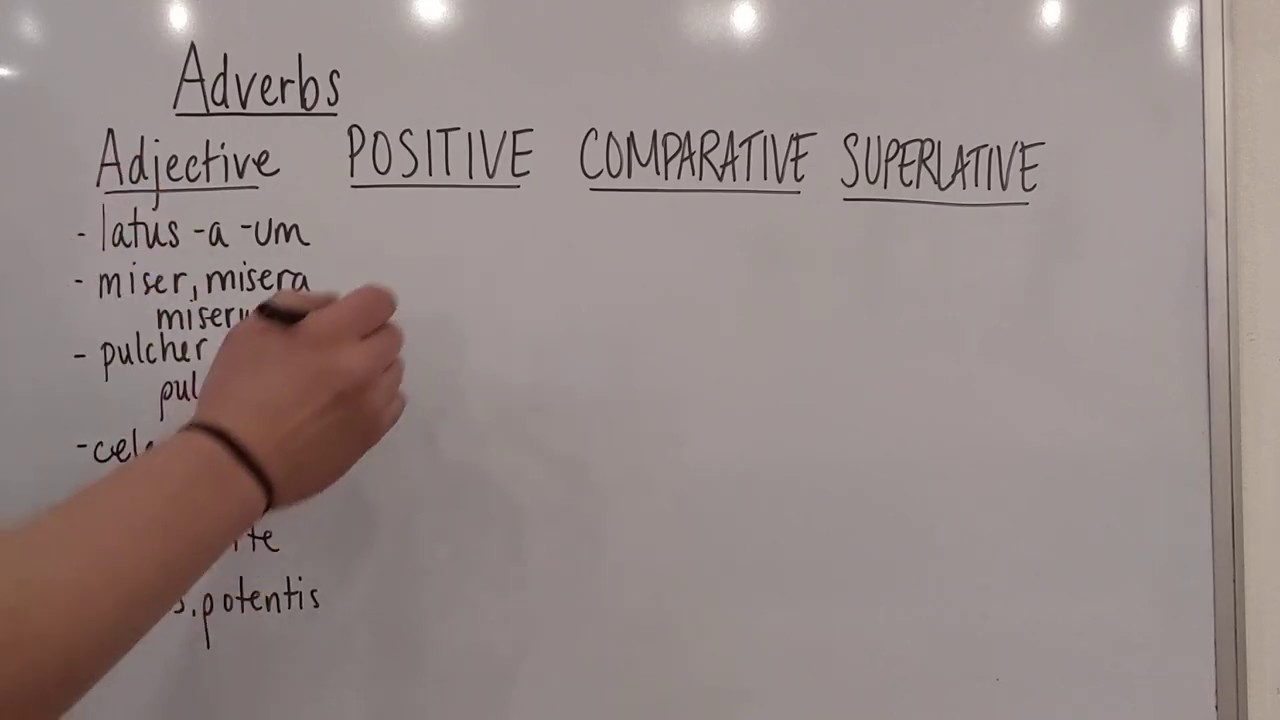 Adverbs
Adjective POSITIVE COMPARATIVE SUPERLATIVE
- latus -a -um
- miser, misera
- pulcher
potentis